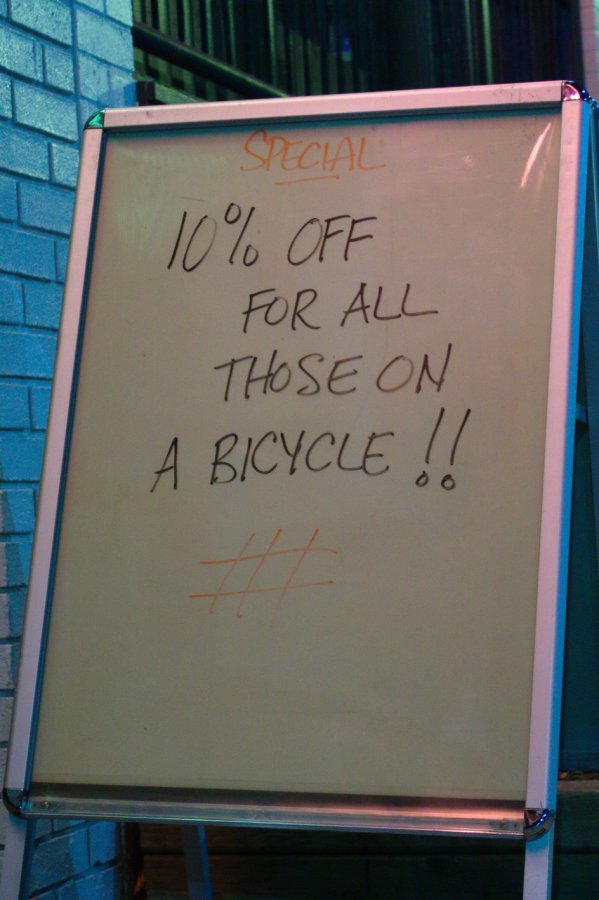 SPECIAL
10% OFF
FOR ALL
THOSE ON
A BICYCLE !!